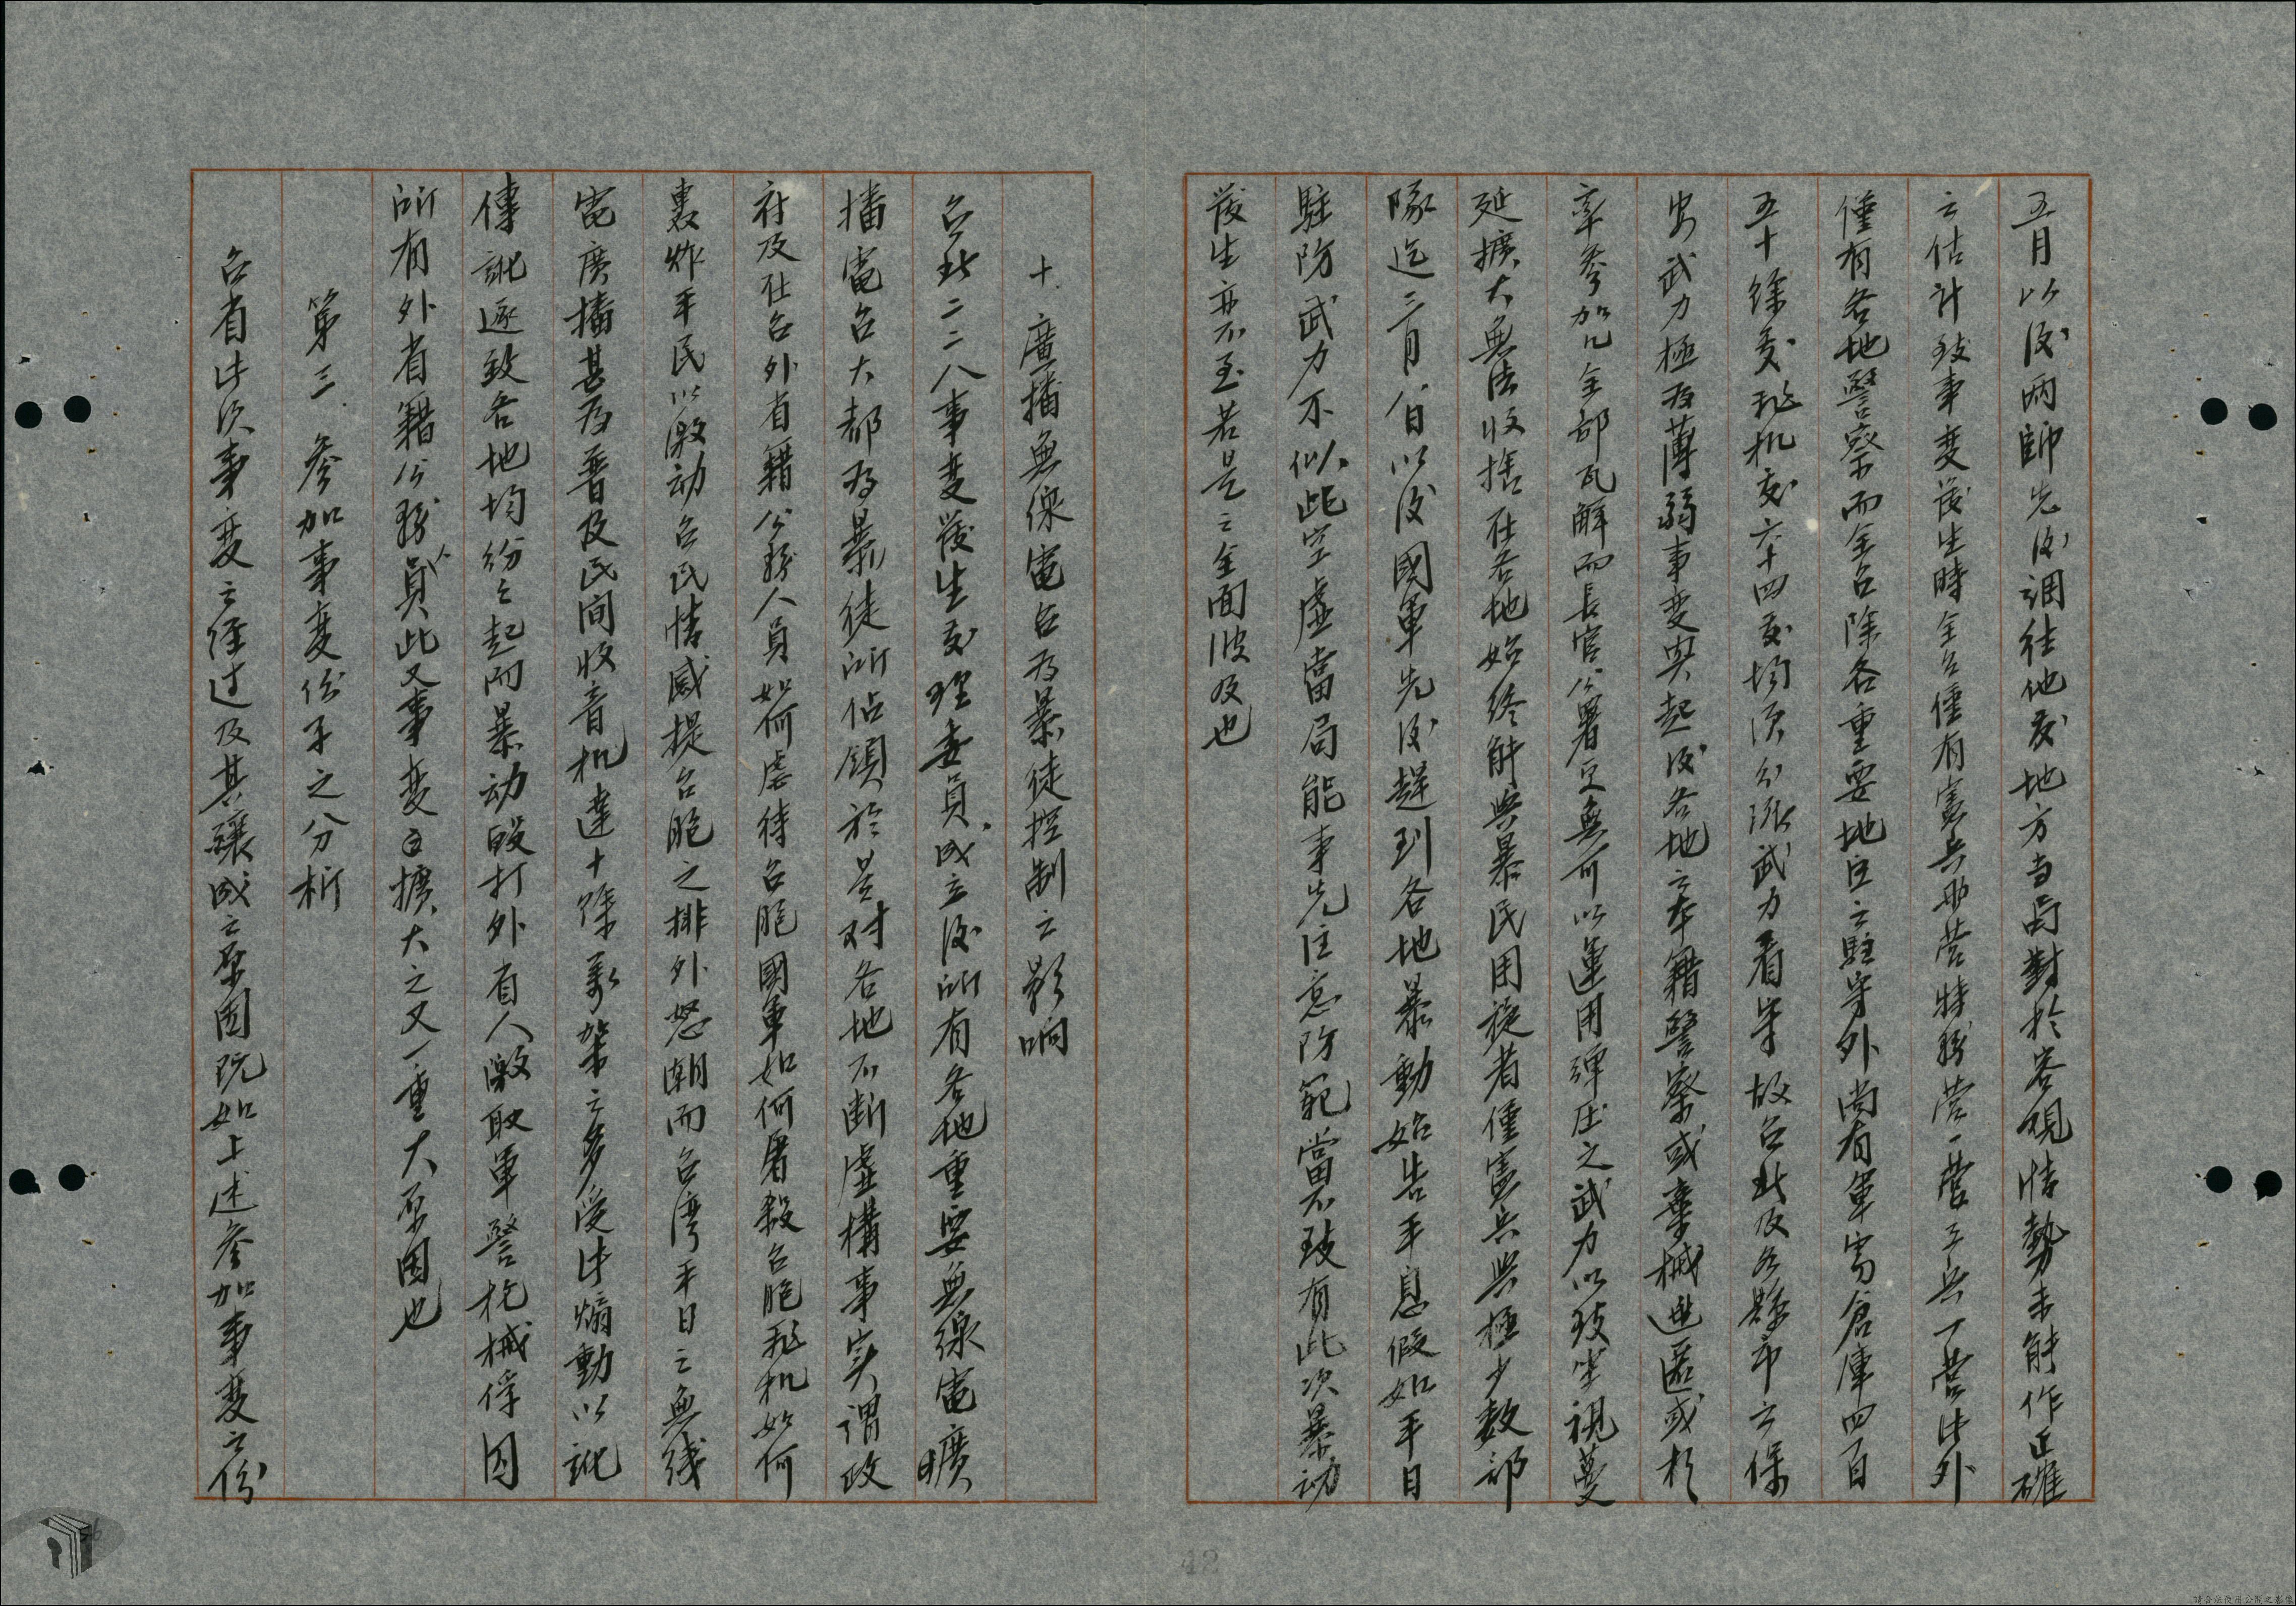 五月以後兩師先後调往他處地方当局對於客观情勢未能作正確
之估计致事变發生時全台僅有憲兵兩营特務营一营工兵一营此外
僅有各地警察而全台除各重要地区之駐守外尚有軍需倉庫四百
五十餘處飛机處六十四處均须分派武力看守故台北及各縣市之保
安武力極为薄弱事变興起後各地之本籍警察或棄械逃匿或於
率參加几全部瓦解而長官公署又無可以運用弹压之武力以致坐視蔓
延擴大無法收捨在各地始终能與暴民周旋者僅憲兵與極少数部
隊迄三月八日以後國軍先後趕到各地暴動始告平息假如平日
駐防武力不似此空虛當局能事先注意防範當不致有此次暴动
發生亦不至若是之全面波及也
十.廣播無線電台为暴徒控制之影响
台北二二八事变發生處理委員成立後所有各地重要無線電廣
播電台大都为暴徒所佔領於是对各地不断虛構事实谓政
府及在台外省籍公務人員如何虐待台胞國軍如何屠殺台胞飛机如何
轟炸平民以激动台民情感提台胞之排外怒潮而台湾平日之無线
電廣播甚为普及民间收音机達十餘萬架之多受此煽動以訛
傳訛遂致各地均纷纷起而暴动毆打外省人激取軍警枪械俘囚
所有外省籍公務人員此又事变擴大之又一重大原因也
第三.參加事变份子之分析
台省此次事变之经过及其釀成之原因既如上述參加事变之份
42